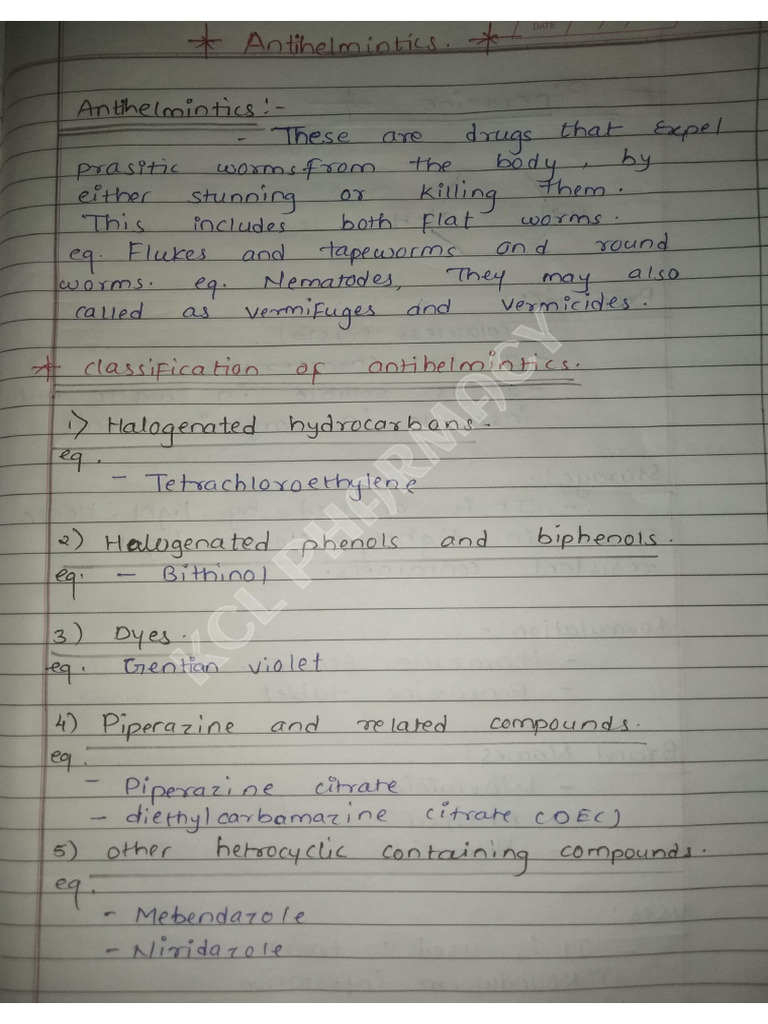 * Antihelmintics. *
DATE
Antihelmintics :-
- These are drugs that expel
prasitic worms from the body, by
either stunning or killing them.
This includes both flat worms.
eg. Flukes and tapeworms and round
worms. eg. Nematodes, They may also
called as vermifuges and vermicides.
* classification of antihelmintics.
1) Halogenated hydrocarbons.
eg.
- Tetrachloroethylene
2) Halogenated phenols and biphenols.
eg. - Bithinol
3) Dyes.
eg. Gentian violet
4) Piperazine and related compounds.
eg.
- Piperazine citrate
- diethylcarbamazine citrate (DEC)
5) other hetrocyclic containing compounds.
eg.
- Mebendazole
- Niridazole
KCL PHARMACY